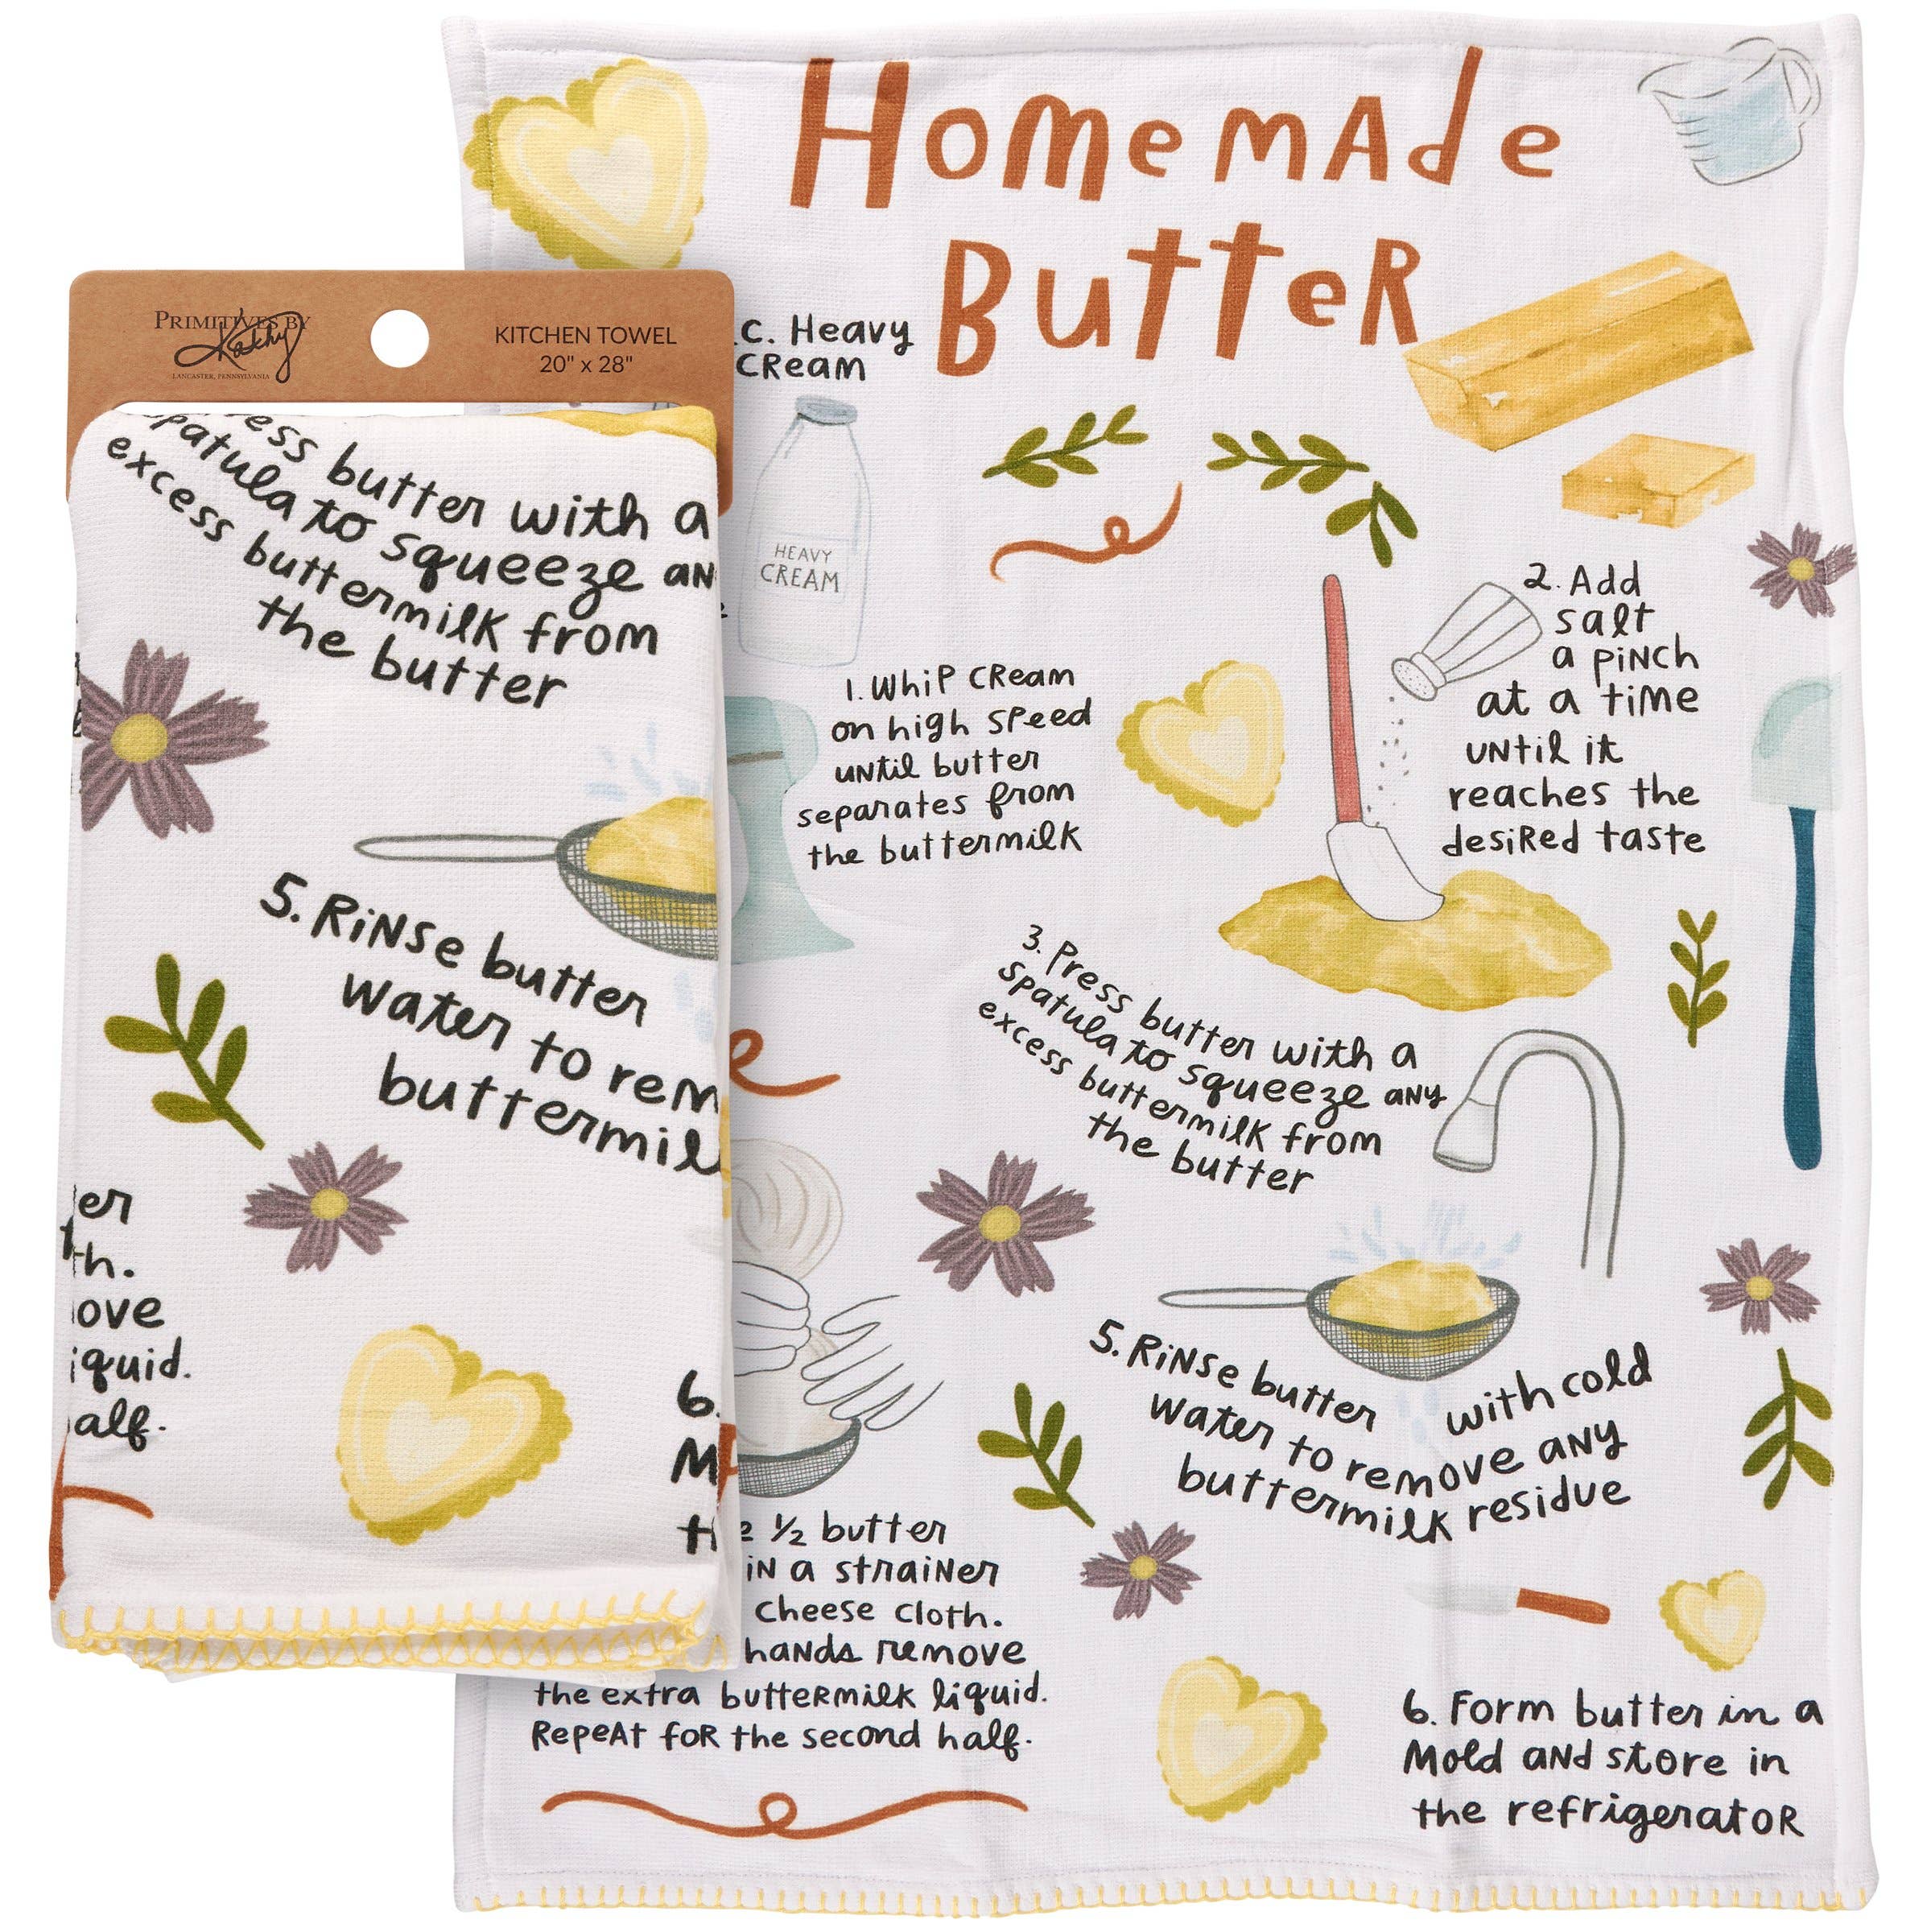 Homemade
Butter
PRIMITIVES BY
Kathy
LANCASTER, PENNSYLVANIA
KITCHEN TOWEL
20" x 28"
ess butter with a
spatula to squeeze an
excess buttermilk from
the butter
5. Rinse butter
water to rem
buttermil
er
th.
ove
iquid.
alf.
6.
M
th
c. Heavy
cream
HEAVY
CREAM
1. Whip cream
on high speed
until butter
separates from
the buttermilk
2. Add
salt
a pinch
at a time
until it
reaches the
desired taste
3. Press butter with a
spatula to squeeze any
excess buttermilk from
the butter
½ butter
in a strainer
cheese cloth.
hands remove
the extra buttermilk liquid.
Repeat for the second half.
5. Rinse butter with cold
water to remove any
buttermilk residue
6. Form butter in a
mold and store in
the refrigerator